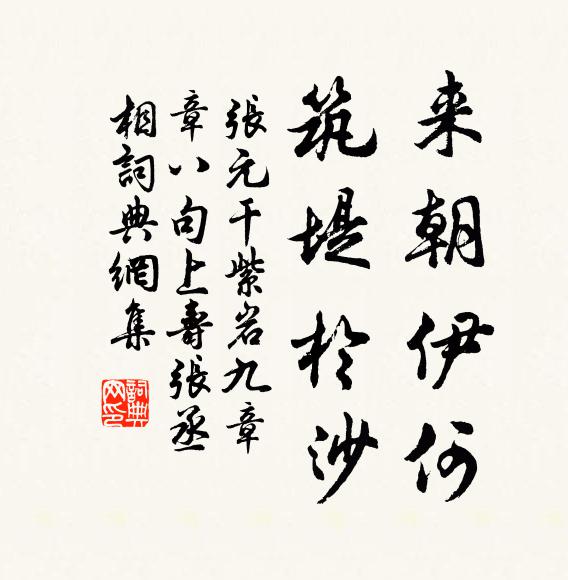 来朝伊何
筑堤於沙
張元干紫岩九章
章八句上壽張丞
相詞典網集
詞典
网印